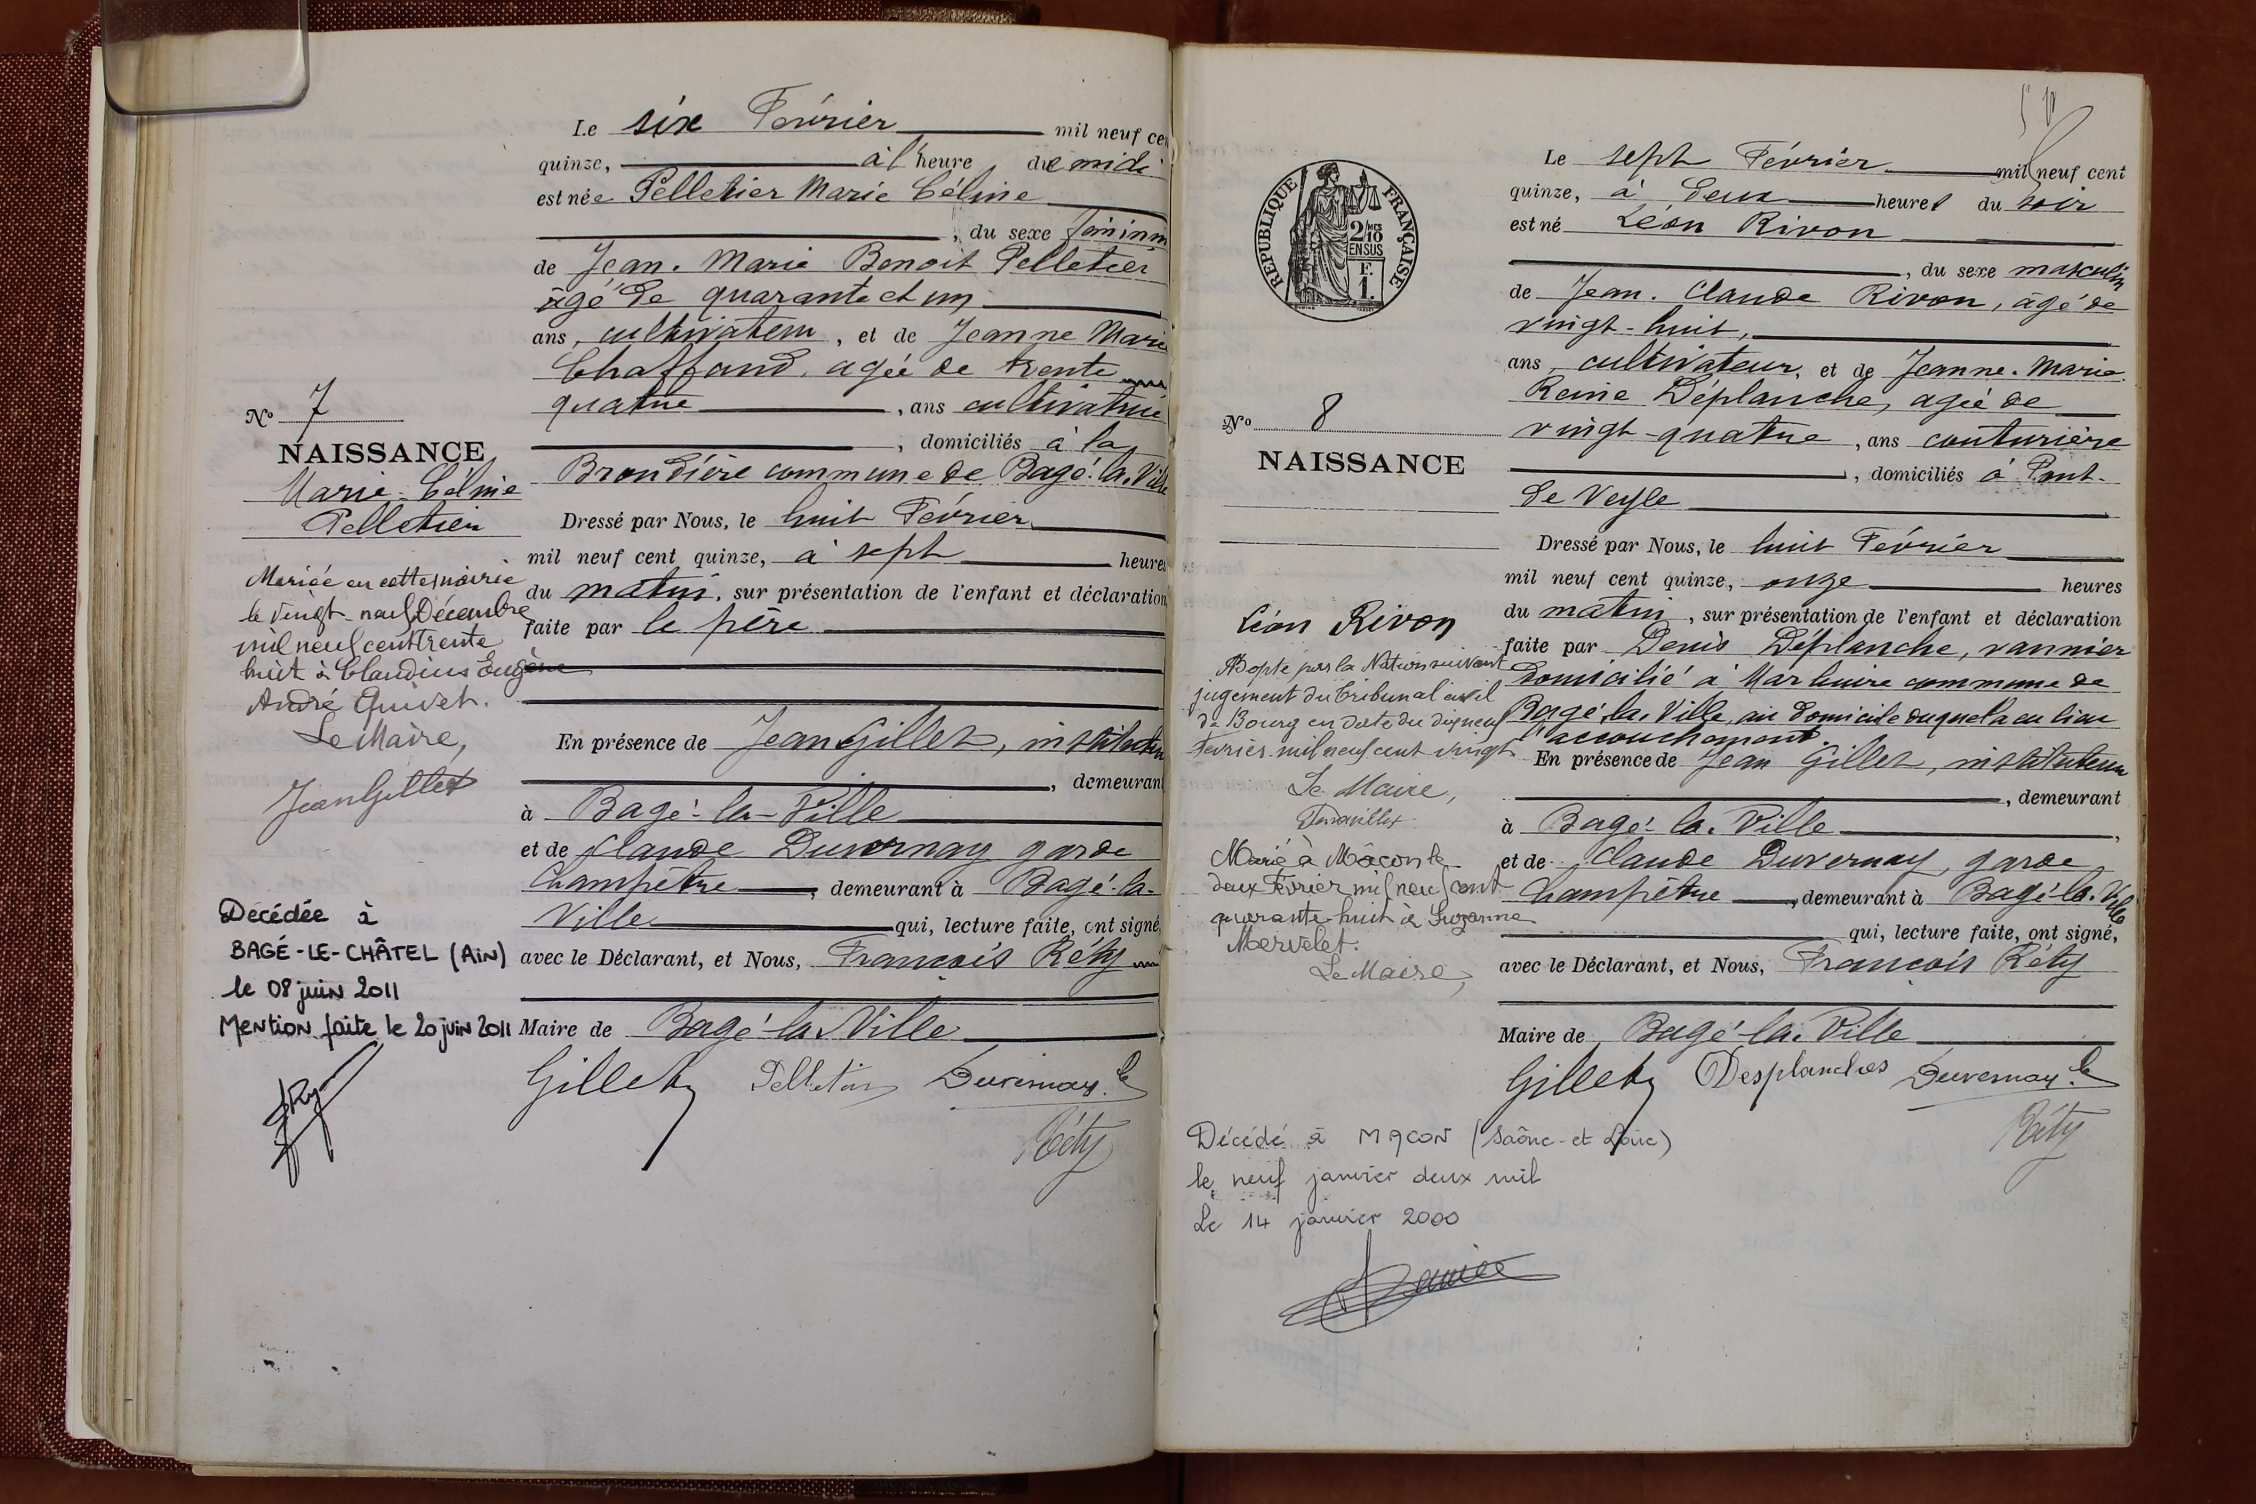 Le six Février mil neuf cen
quinze, à l'heure de midi
est née Pelletier Marie Céline
, du sexe féminin
de Jean. Marie Benoit Pelletier
âgé de quarante et un
ans, cultivateur, et de Jeanne Marie
Chaffaud, agée de trente
quatre, ans cultivatrice
, domiciliés à la
Brondière commune de Bagé-la-Ville
Dressé par Nous, le huit Février
mil neuf cent quinze, à sept heures
du matin, sur présentation de l'enfant et déclaration
faite par le père
En présence de Jean Gillet, instituteur
, demeurant
à Bagé-la-Ville
et de Claude Duvernay garde
Champêtre, demeurant à Bagé-la-
Ville qui, lecture faite, ont signé,
avec le Déclarant, et Nous, François Réty
Maire de Bagé-la-Ville
Gillet Pelletier Duvernay C
Réty
No 7
NAISSANCE
Marie-Céline
Pelletier
Mariée en cette mairie
le vingt-neuf Décembre
mil neuf cent trente
huit à Claudius Eugène
André Quivet.
Le Maire,
Jean Gillet
Décédée à
BAGÉ-LE-CHÂTEL (Ain)
le 08 juin 2011
Mention faite le 20 juin 2011
REPUBLIQUE FRANÇAISE
2/10
MES
EN SUS
F.
1.
Le sept Février mil neuf cent
quinze, à deux heures du soir
est né Léon Rivon
, du sexe masculin
de Jean. Claude Rivon, âgé de
vingt-huit,
ans, cultivateur, et de Jeanne. Marie
Reine Déplanche, agée de
vingt-quatre, ans couturière
, domiciliés à Pont-
de Veyle
Dressé par Nous, le huit Février
mil neuf cent quinze, onze heures
du matin, sur présentation de l'enfant et déclaration
faite par Denis Déplanche, vannier
domicilié à Marhuire commune de
Bagé-la-Ville, au domicile duquel a eu lieu
l'accouchement.
En présence de Jean Gillet, instituteur
, demeurant
à Bagé-la-Ville,
et de Claude Duvernay, garde
Champêtre, demeurant à Bagé-la-Ville
qui, lecture faite, ont signé,
avec le Déclarant, et Nous, François Réty
Maire de Bagé-la-Ville
Gillet Desplanches Duvernay C
Réty
No 8
NAISSANCE
Léon Rivon
Adopté par la Nation suivant
jugement du Tribunal civil
de Bourg en date du dix neuf
Février mil neuf cent vingt
Le Maire,
Marié à Mâcon le
deux Février mil neuf cent
quarante-huit à Suzanne
Mervelet.
Le Maire,
Décédé à MACON (Saône-et Loire)
le neuf janvier deux mil
Le 14 janvier 2000